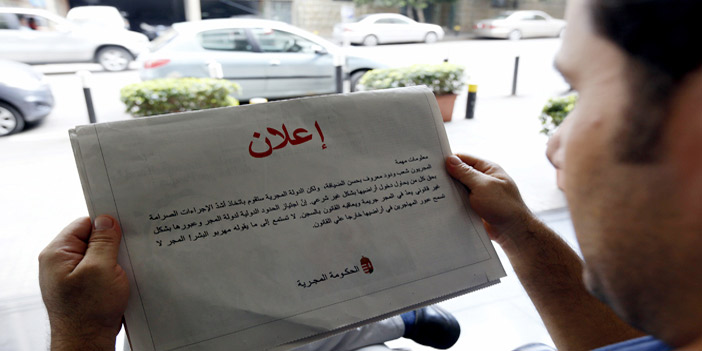 إعلان
معلومات مهمة
المجريون شعب ودود معروف بحسن الضيافة، ولكن الدولة المجرية ستقوم باتخاذ أشدّ الإجراءات الصرامة
بحق كل من يحاول دخول أراضيها بشكل غير شرعي. إنّ اجتياز الحدود الدولية لدولة المجر وعبورها بشكل
غير قانوني يعدّ في المجر جريمة ويعاقبه القانون بالسجن. لا تستمع إلى ما يقوله مهربو البشر! المجر لا
تسمح عبور المهاجرين في أراضيها خارجا على القانون.
الحكومة المجرية